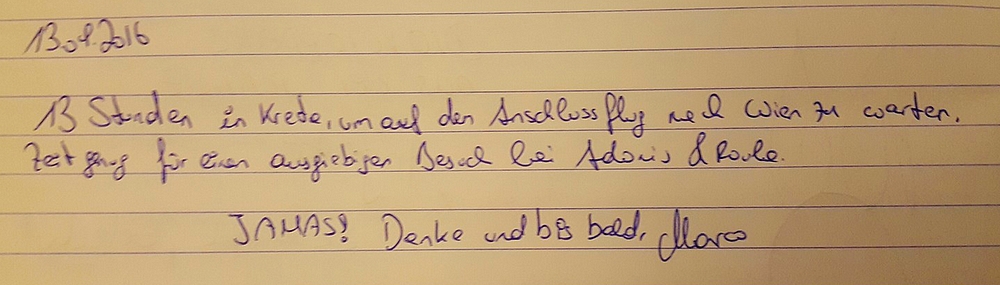 13.09.2016
13 Stunden in Kreta, um auf den Anschlussflug nach Wien zu warten.
Zeit genug für einen ausgiebigen Besuch bei Adonis & Roula.
JAMAS! Danke und bis bald, Marco